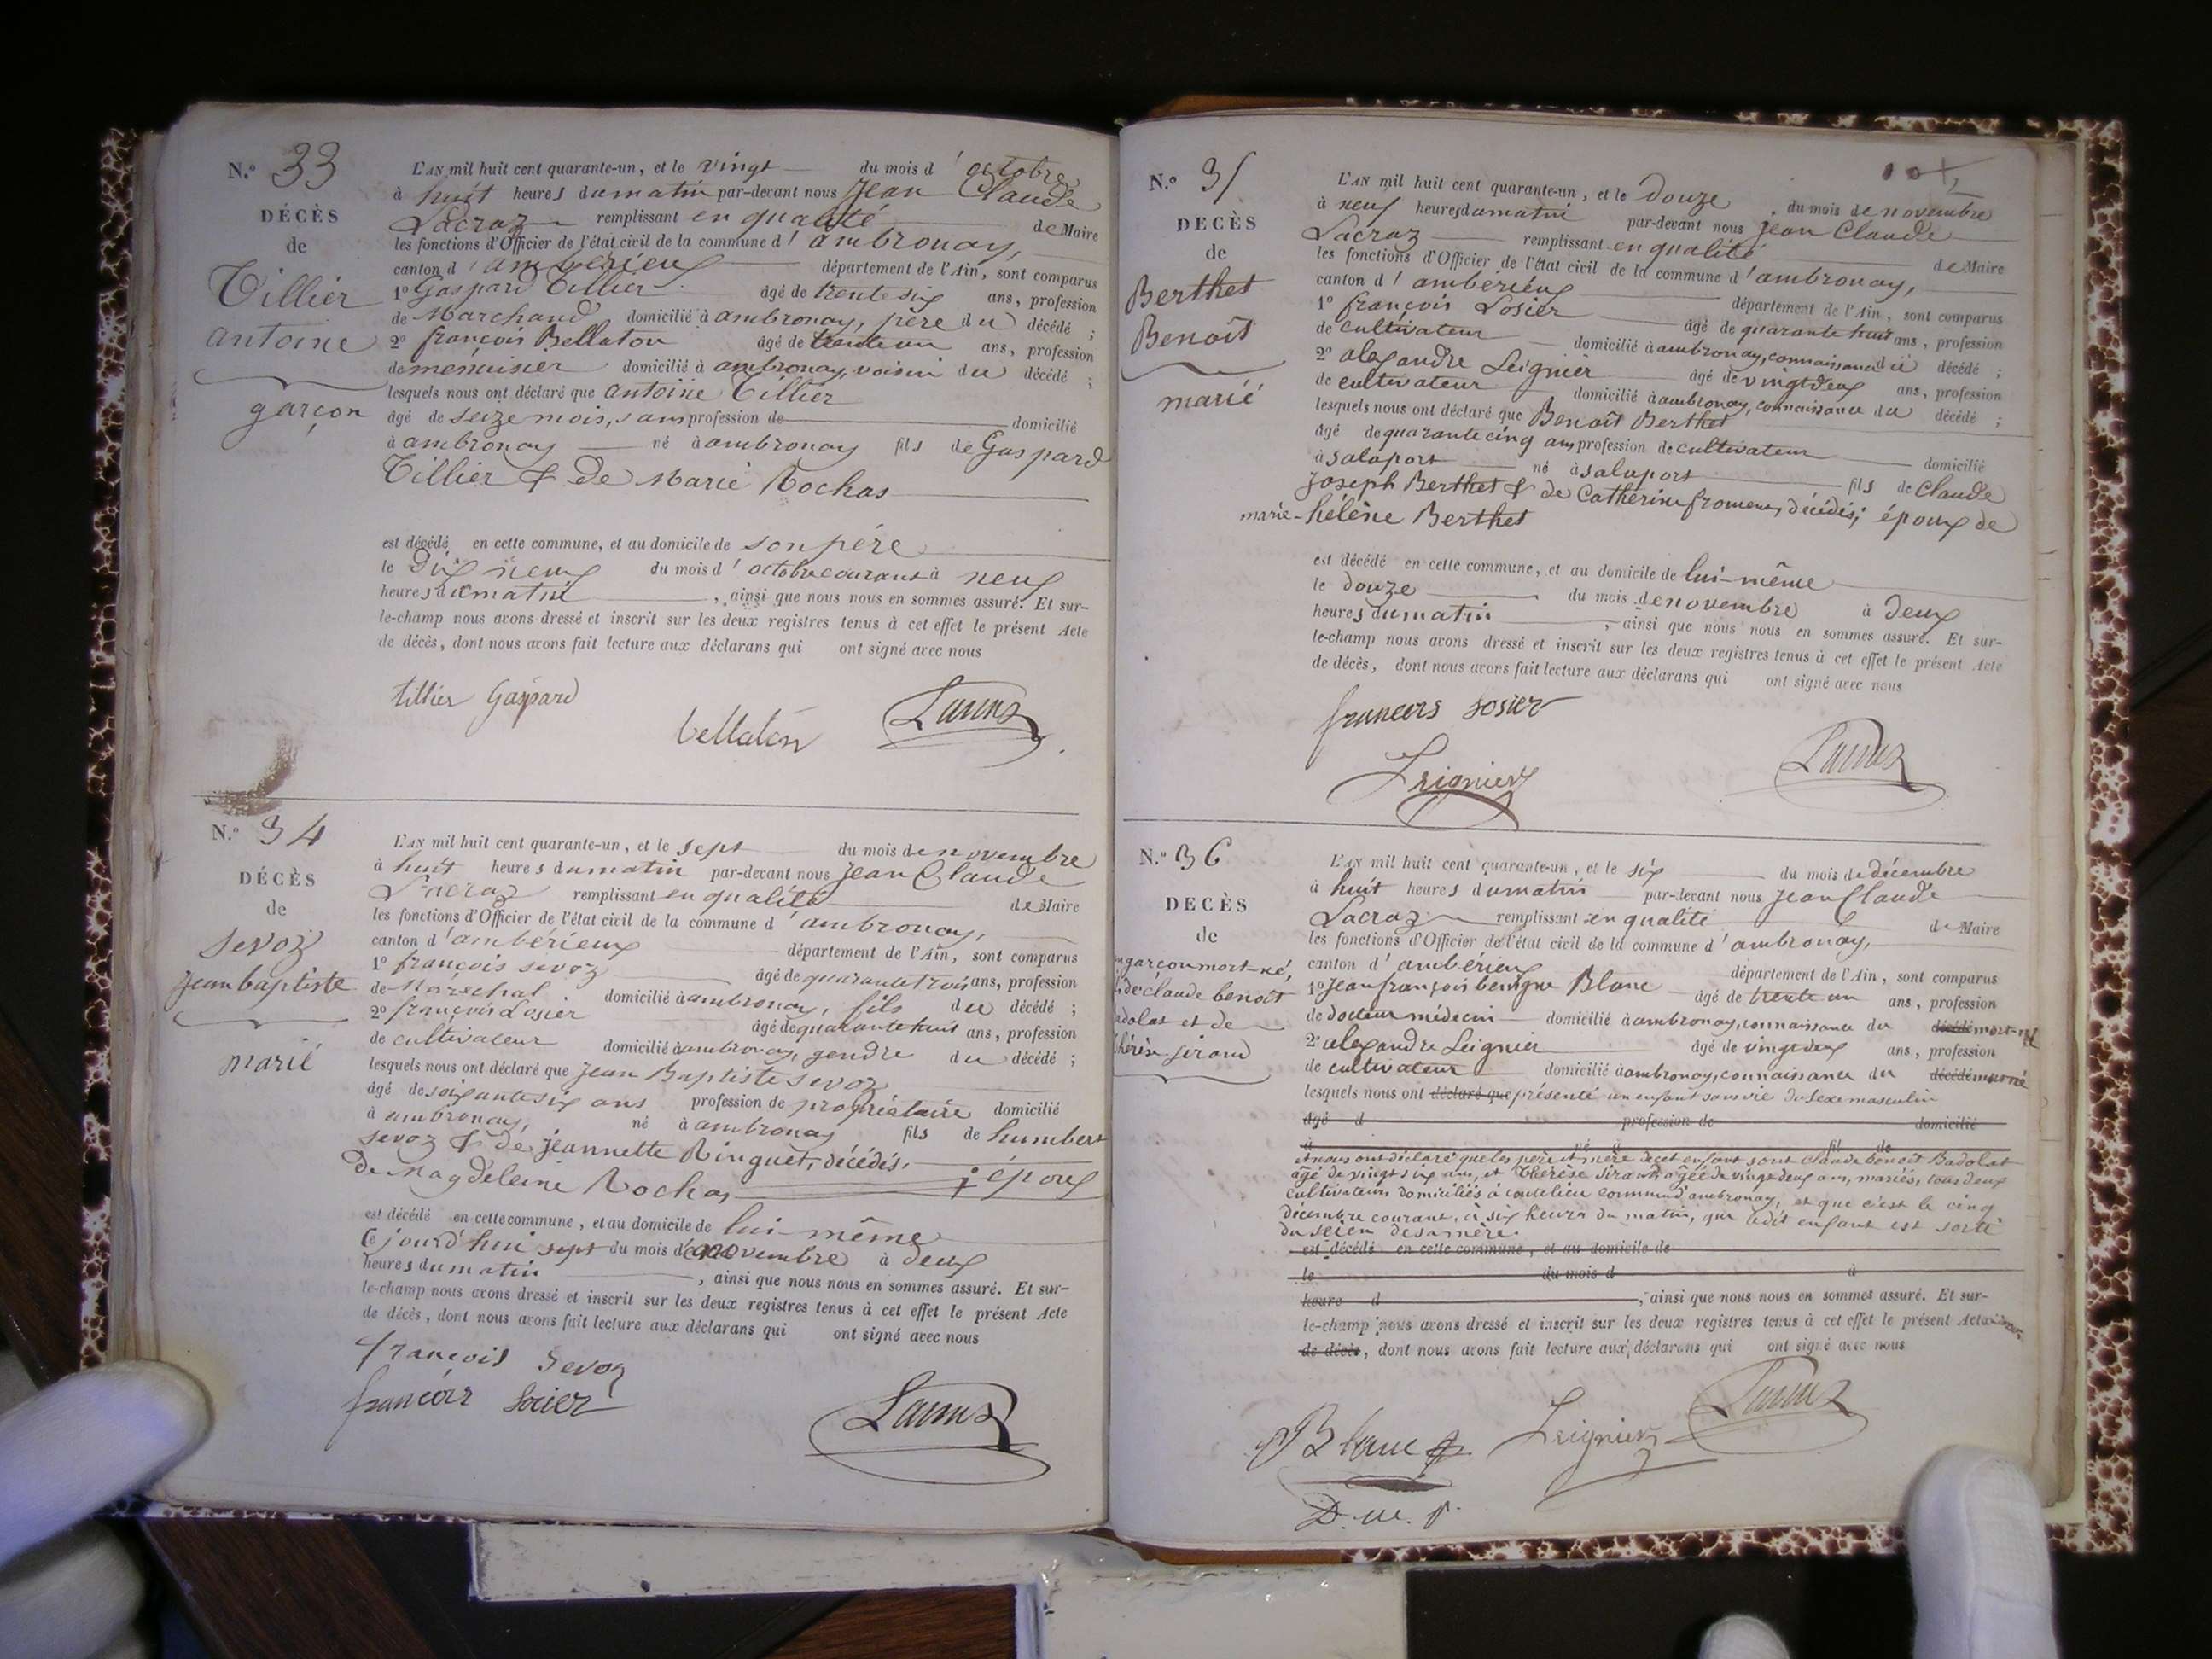 N.° 33
DÉCÈS
de
Tillier
antoine
garçon
L'AN mil huit cent quarante-un, et le vingt du mois d'octobre
à huit heures du matin par-devant nous Jean Claude
Lacroz remplissant en qualité de Maire
les fonctions d'Officier de l'état civil de la commune d'ambronay,
canton d'ambérieux département de l'Ain, sont comparus
1° Gaspard Tillier âgé de trente six ans, profession
de Marchand domicilié à ambronay, père du décédé ;
2° françois Bellaton âgé de trente un ans, profession
de menuisier domicilié à ambronay, voisin du décédé ;
lesquels nous ont déclaré que antoine Tillier
âgé de seize mois, sans profession de domicilié
à ambronay né à ambronay fils de Gaspard
Tillier & de Marie Rochas
est décédé en cette commune, et au domicile de son père
le dix neuf du mois d'octobre courant à neuf
heures du matin , ainsi que nous nous en sommes assuré. Et sur-
le-champ nous avons dressé et inscrit sur les deux registres tenus à cet effet le présent Acte
de décès, dont nous avons fait lecture aux déclarans qui ont signé avec nous
tillier Gaspard
bellaton
Lacroz
N.° 34
DÉCÈS
de
Sevoz
jean baptiste
marié
L'AN mil huit cent quarante-un, et le sept du mois de novembre
à huit heures du matin par-devant nous Jean Claude
Lacroz remplissant en qualité de Maire
les fonctions d'Officier de l'état civil de la commune d'ambronay,
canton d'ambérieux département de l'Ain, sont comparus
1° françois sevoz âgé de quarante trois ans, profession
de Maréchal domicilié à ambronay, fils du décédé ;
2° françois Losier âgé de quarante huit ans, profession
de cultivateur domicilié à ambronay, gendre du décédé ;
lesquels nous ont déclaré que Jean Baptiste Sevoz
âgé de soixante six ans profession de propriétaire domicilié
à ambronay, né à ambronay fils de humbert
sevoz & de jeannette Ringuet, décédés. ; époux
de Magdeleine Rochas
est décédé en cette commune, et au domicile de lui-même
Ce jourd'hui sept du mois de novembre à deux
heures du matin , ainsi que nous nous en sommes assuré. Et sur-
le-champ nous avons dressé et inscrit sur les deux registres tenus à cet effet le présent Acte
de décès, dont nous avons fait lecture aux déclarans qui ont signé avec nous
françois Sevoz
françois Losier
Lacroz
N.° 35
DECÈS
de
Berthet
Benoît
marié
L'AN mil huit cent quarante-un, et le douze du mois de novembre
à neuf heures du matin par-devant nous jean Claude
Lacroz remplissant en qualité de Maire
les fonctions d'Officier de l'état civil de la commune d'ambronay,
canton d'ambérieux département de l'Ain, sont comparus
1° françois Losier âgé de quarante huit ans, profession
de cultivateur domicilié à ambronay, connaissance du décédé ;
2° alexandre Leignier âgé de vingt deux ans, profession
de cultivateur domicilié à ambronay, connaissance du décédé ;
lesquels nous ont déclaré que Benoît Berthet
âgé de quarante cinq ans profession de cultivateur domicilié
à salaport né à salaport fils de Claude
joseph Berthet & de Catherine décédés; époux de
marie-hélène Berthet
est décédé en cette commune, et au domicile de lui-même
le douze du mois de novembre à deux
heures du matin , ainsi que nous nous en sommes assuré. Et sur-
le-champ nous avons dressé et inscrit sur les deux registres tenus à cet effet le présent Acte
de décès, dont nous avons fait lecture aux déclarans qui ont signé avec nous
françois Losier
Leignier
Lacroz
N.° 36
DECÈS
de
garçon mort-né,
de claude benoît
adolat et de
hérèse sirand
L'AN mil huit cent quarante-un, et le six du mois de décembre
à huit heures du matin par-devant nous jean Claude
Lacroz remplissant en qualité de Maire
les fonctions d'Officier de l'état civil de la commune d'ambronay,
canton d'ambérieux département de l'Ain, sont comparus
1° Jean françois benigne Blanc âgé de trente un ans, profession
de docteur médecin domicilié à ambronay, connaissance du décédé mort-né
2° alexandre Leignier âgé de vingt deux ans, profession
de cultivateur domicilié à ambronay, connaissance du décédé mort né
lesquels nous ont déclaré que présenté un enfant sans vie du sexe masculin
âgé d profession de domicilié
à né à fil de
et nous ont déclaré que les père et mère de cet enfant sont claude benoît Badolat
âgé de vingt six ans, et Thérèse Sirand âgée de vingt deux ans, mariés, tous deux
cultivateurs domiciliés à commune d'ambronay, et que c'est le cinq
décembre courant, à six heures du matin, que ledit enfant est sorti
du sein de sa mère.
est décédé en cette commune, et au domicile de
le du mois d à
heure d , ainsi que nous nous en sommes assuré. Et sur-
le-champ nous avons dressé et inscrit sur les deux registres tenus à cet effet le présent Acte
de décès, dont nous avons fait lecture aux déclarans qui ont signé avec nous
Blanc
Leignier
Lacroz
D. m. p.